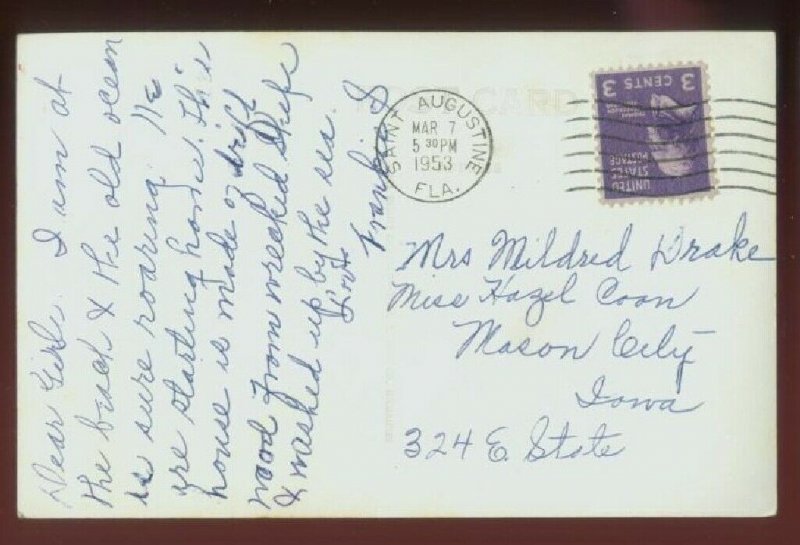 Dear Girls. I am at
the beach & the old ocean
is sure roaring. We
are starting home. This
house is made of drift
wood from wrecked ships
& washed up by the sea.
Love
SAINT AUGUSTINE
MAR 7
5 30 PM
1953
FLA.
3 CENTS 3
UNITED
STATES
POSTAGE
Mrs Mildred Drake
Miss Hazel Coon
Mason City
Iowa
324 E. State